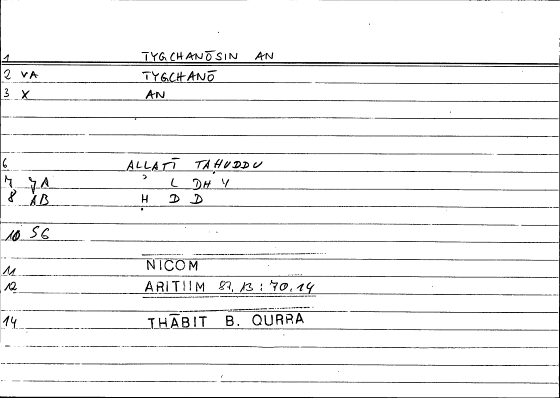 1 TYGCHANŌSIN AN
2 VA TYGCHANŌ
3 X AN
6 ALLATĪ TAḤUDDU
7 JA ʾ L DH Y
8 AB Ḥ D D
10 SG
11 NICOM
12 ARITHM 87,13 : 70,14
14 THĀBIT B. QURRA